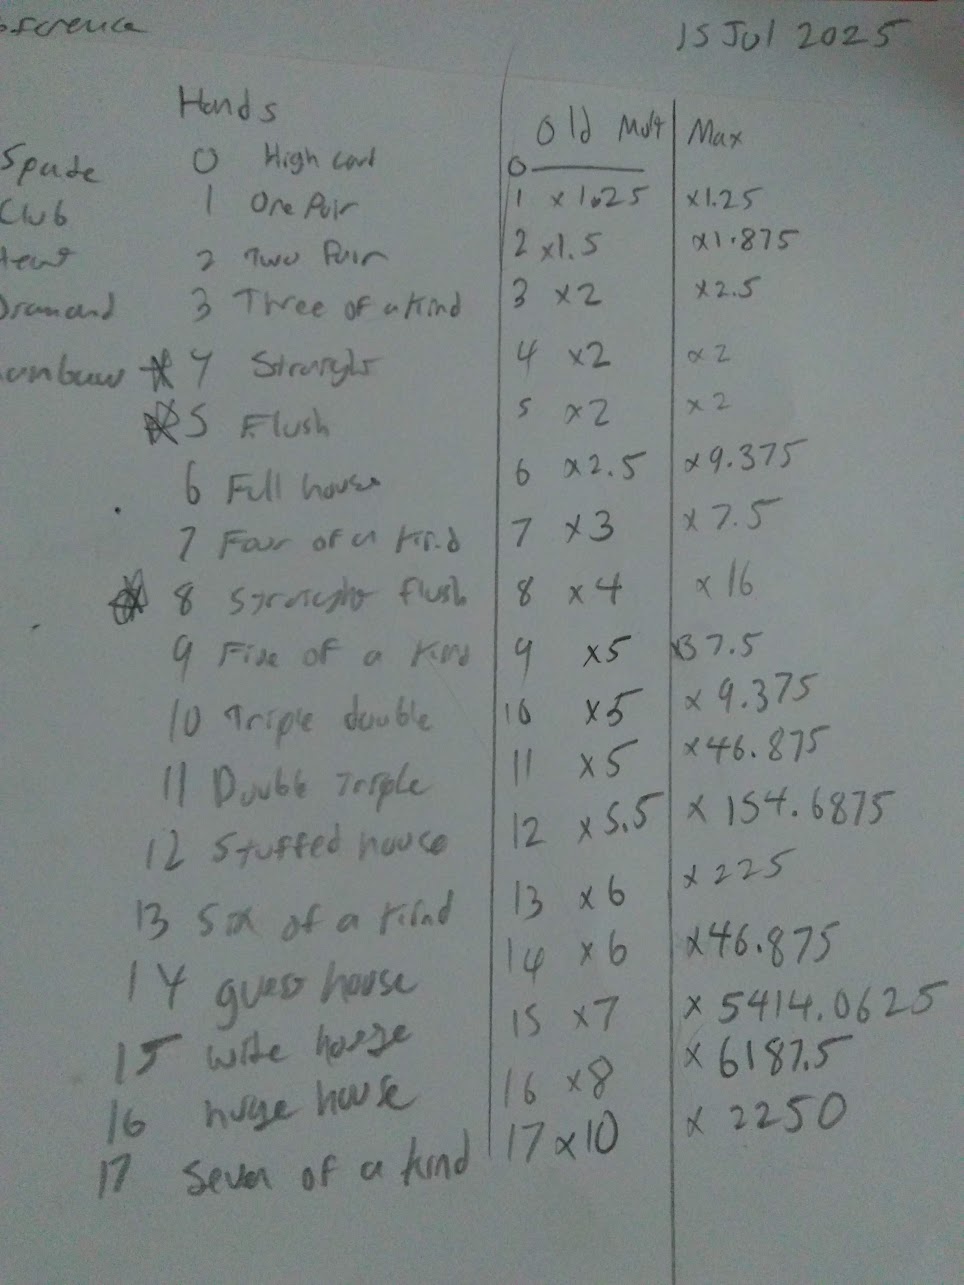 15 Jul 2025
Hands Old Mult Max
Spade 0 High card 0
Club 1 One Pair 1 x1.25 x1.25
2 Two Pair 2 x1.5 x1.875
3 Three of a kind 3 x2 x2.5
4 Straight 4 x2 x2
5 Flush 5 x2 x2
6 Full house 6 x2.5 x9.375
7 Four of a kind 7 x3 x7.5
8 Straight flush 8 x4 x16
9 Five of a kind 9 x5 x37.5
10 Triple double 10 x5 x9.375
11 Double Triple 11 x5 x46.875
12 Stuffed house 12 x5.5 x154.6875
13 Six of a kind 13 x6 x225
14 guest house 14 x6 x46.875
15 house 15 x7 x5414.0625
16 huge house 16 x8 x6187.5
17 Seven of a kind 17 x10 x2250